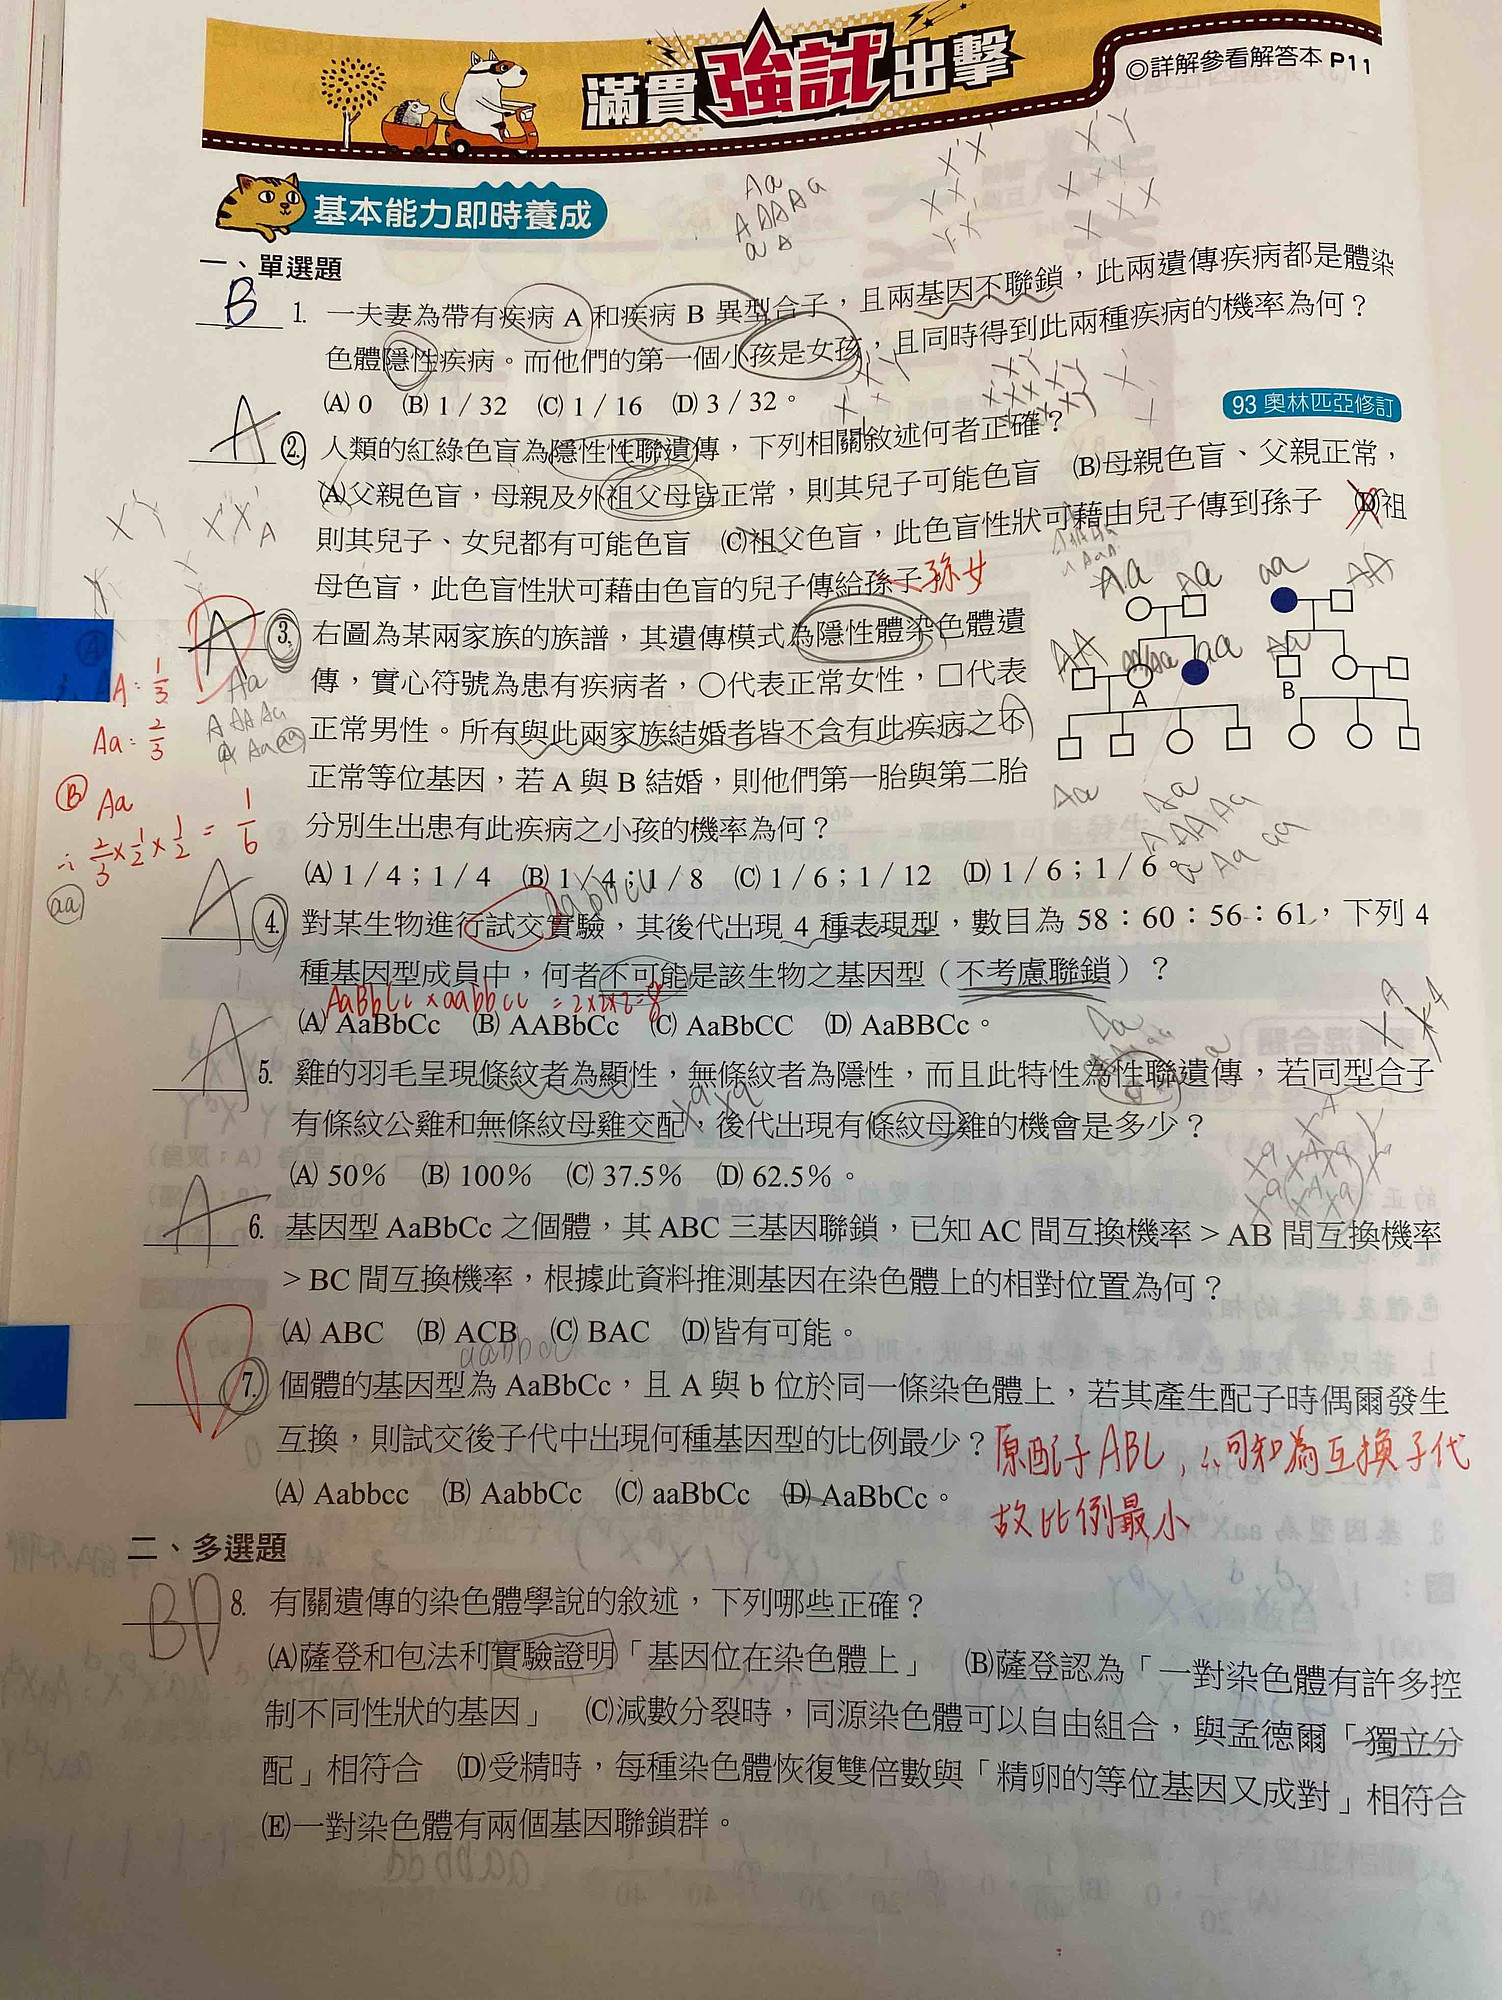 滿貫強試出擊
◎詳解參看解答本 P11
基本能力即時養成
一、單選題
B 1. 一夫妻為帶有疾病 A 和疾病 B 異型合子，且兩基因不聯鎖，此兩遺傳疾病都是體染
色體隱性疾病。而他們的第一個小孩是女孩，且同時得到此兩種疾病的機率為何？
(A) 0 (B) 1／32 (C) 1／16 (D) 3／32。
93 奧林匹亞修訂
A 2. 人類的紅綠色盲為隱性性聯遺傳，下列相關敘述何者正確？
(A)父親色盲，母親及外祖父母皆正常，則其兒子可能色盲 (B)母親色盲、父親正常，
則其兒子、女兒都有可能色盲 (C)祖父色盲，此色盲性狀可藉由兒子傳到孫子 (D)祖
母色盲，此色盲性狀可藉由色盲的兒子傳給孫子
孫女
A 3. 右圖為某兩家族的族譜，其遺傳模式為隱性體染色體遺
傳，實心符號為患有疾病者，○代表正常女性，□代表
正常男性。所有與此兩家族結婚者皆不含有此疾病之不
正常等位基因，若 A 與 B 結婚，則他們第一胎與第二胎
分別生出患有此疾病之小孩的機率為何？
(A) 1／4；1／4 (B) 1／4；1／8 (C) 1／6；1／12 (D) 1／6；1／6。
Aa aa aa AA
A B
AA: 1/3
Aa: 2/3
B Aa
∴ 2/3 × 1/2 × 1/2 = 1/6
aa
A 4. 對某生物進行試交實驗，其後代出現 4 種表現型，數目為 58：60：56：61，下列 4
種基因型成員中，何者不可能是該生物之基因型（不考慮聯鎖）？
AaBbCc × aabbcc = 2×2×2=8
(A) AaBbCc (B) AABbCc (C) AaBbCC (D) AaBBCc。
A 5. 雞的羽毛呈現條紋者為顯性，無條紋者為隱性，而且此特性為性聯遺傳，若同型合子
有條紋公雞和無條紋母雞交配，後代出現有條紋母雞的機會是多少？
(A) 50％ (B) 100％ (C) 37.5％ (D) 62.5％。
A 6. 基因型 AaBbCc 之個體，其 ABC 三基因聯鎖，已知 AC 間互換機率＞AB 間互換機率
＞BC 間互換機率，根據此資料推測基因在染色體上的相對位置為何？
(A) ABC (B) ACB (C) BAC (D)皆有可能。
7. 個體的基因型為 AaBbCc，且 A 與 b 位於同一條染色體上，若其產生配子時偶爾發生
互換，則試交後子代中出現何種基因型的比例最少？
(A) Aabbcc (B) AabbCc (C) aaBbCc (D) AaBbCc。
原配子ABC，∴可知為互換子代
故比例最小
二、多選題
BD 8. 有關遺傳的染色體學說的敘述，下列哪些正確？
(A)薩登和包法利實驗證明「基因位在染色體上」 (B)薩登認為「一對染色體有許多控
制不同性狀的基因」 (C)減數分裂時，同源染色體可以自由組合，與孟德爾「獨立分
配」相符合 (D)受精時，每種染色體恢復雙倍數與「精卵的等位基因又成對」相符合
(E)一對染色體有兩個基因聯鎖群。